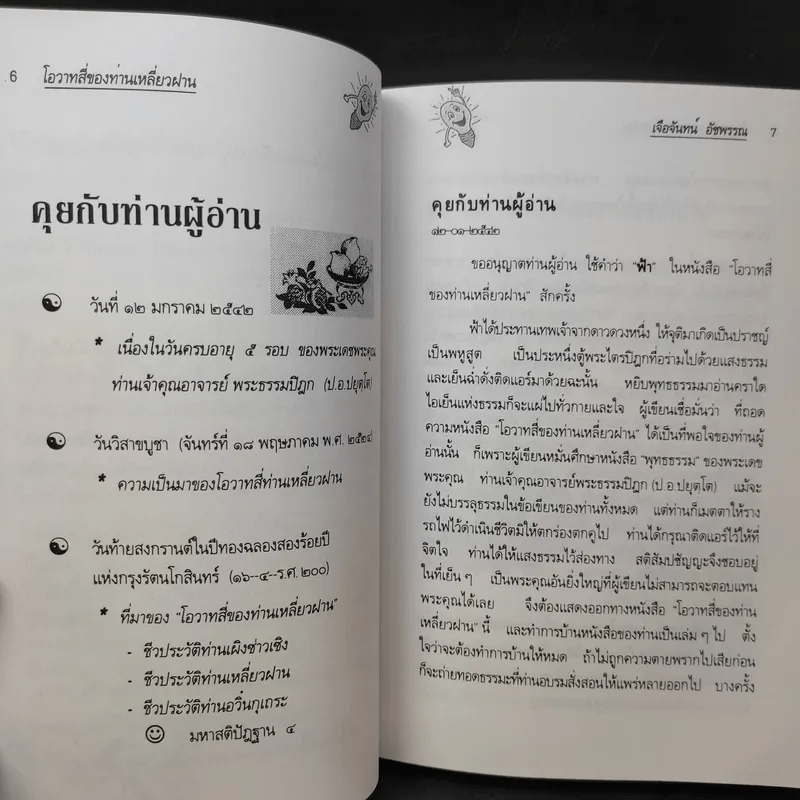 6 โอวาทสี่ของท่านเหลี่ยวฝาน
คุยกับท่านผู้อ่าน
วันที่ ๑๒ มกราคม ๒๕๔๒
* เนื่องในวันครบอายุ ๕ รอบ ของพระเดชพระคุณ
ท่านเจ้าคุณอาจารย์ พระธรรมปิฎก (ป.อ.ปยุตโต)
วันวิสาขบูชา (จันทร์ที่ ๑๘ พฤษภาคม พ.ศ. ๒๕๒๔)
* ความเป็นมาของโอวาทสี่ท่านเหลี่ยวฝาน
วันท้ายสงกรานต์ในปีทองฉลองสองร้อยปี
แห่งกรุงรัตนโกสินทร์ (๑๖--๔--ร.ศ. ๒๐๐)
* ที่มาของ "โอวาทสี่ของท่านเหลี่ยวฝาน"
- ชีวประวัติท่านเผิงซ่าวเซิง
- ชีวประวัติท่านเหลี่ยวฝาน
- ชีวประวัติท่านอวิ๋นกุเถระ
มหาสติปัฏฐาน ๔
เจือจันทน์ อัชพรรณ 7
คุยกับท่านผู้อ่าน
๑๒-๐๑-๒๕๔๒
ขออนุญาตท่านผู้อ่าน ใช้คำว่า "ฟ้า" ในหนังสือ "โอวาทสี่
ของท่านเหลี่ยวฝาน" สักครั้ง
ฟ้าได้ประทานเทพเจ้าจากดาวดวงหนึ่ง ให้จุติมาเกิดเป็นปราชญ์
เป็นพหูสูต เป็นประหนึ่งตู้พระไตรปิฎกที่อร่ามไปด้วยแสงธรรม
และเย็นฉ่ำดั่งติดแอร์มาด้วยฉะนั้น หยิบพุทธธรรมมาอ่านคราใด
ไอเย็นแห่งธรรมก็จะแผ่ไปทั่วกายและใจ ผู้เขียนเชื่อมั่นว่า ที่ถอด
ความหนังสือ "โอวาทสี่ของท่านเหลี่ยวฝาน" ได้เป็นที่พอใจของท่านผู้
อ่านนั้น ก็เพราะผู้เขียนหมั่นศึกษาหนังสือ "พุทธธรรม" ของพระเดช
พระคุณ ท่านเจ้าคุณอาจารย์พระธรรมปิฎก (ป.อ.ปยุตโต) แม้จะ
ยังไม่บรรลุธรรมในข้อเขียนของท่านทั้งหมด แต่ท่านก็เมตตาให้ราง
รถไฟไว้ดำเนินชีวิตมิให้ตกร่องตกคูไป ท่านได้กรุณาติดแอร์ไว้ให้ที่
จิตใจ ท่านได้ให้แสงธรรมไว้ส่องทาง สติสัมปชัญญะจึงชอบอยู่
ในที่เย็นๆ เป็นพระคุณอันยิ่งใหญ่ที่ผู้เขียนไม่สามารถจะตอบแทน
พระคุณได้เลย จึงต้องแสดงออกทางหนังสือ "โอวาทสี่ของท่าน
เหลี่ยวฝาน" นี้ และทำการบ้านหนังสือของท่านเป็นเล่มๆ ไป ตั้ง
ใจว่าจะต้องทำการบ้านให้หมด ถ้าไม่ถูกความตายพรากไปเสียก่อน
ก็จะถ่ายทอดธรรมะที่ท่านอบรมสั่งสอนให้แพร่หลายออกไป บางครั้ง